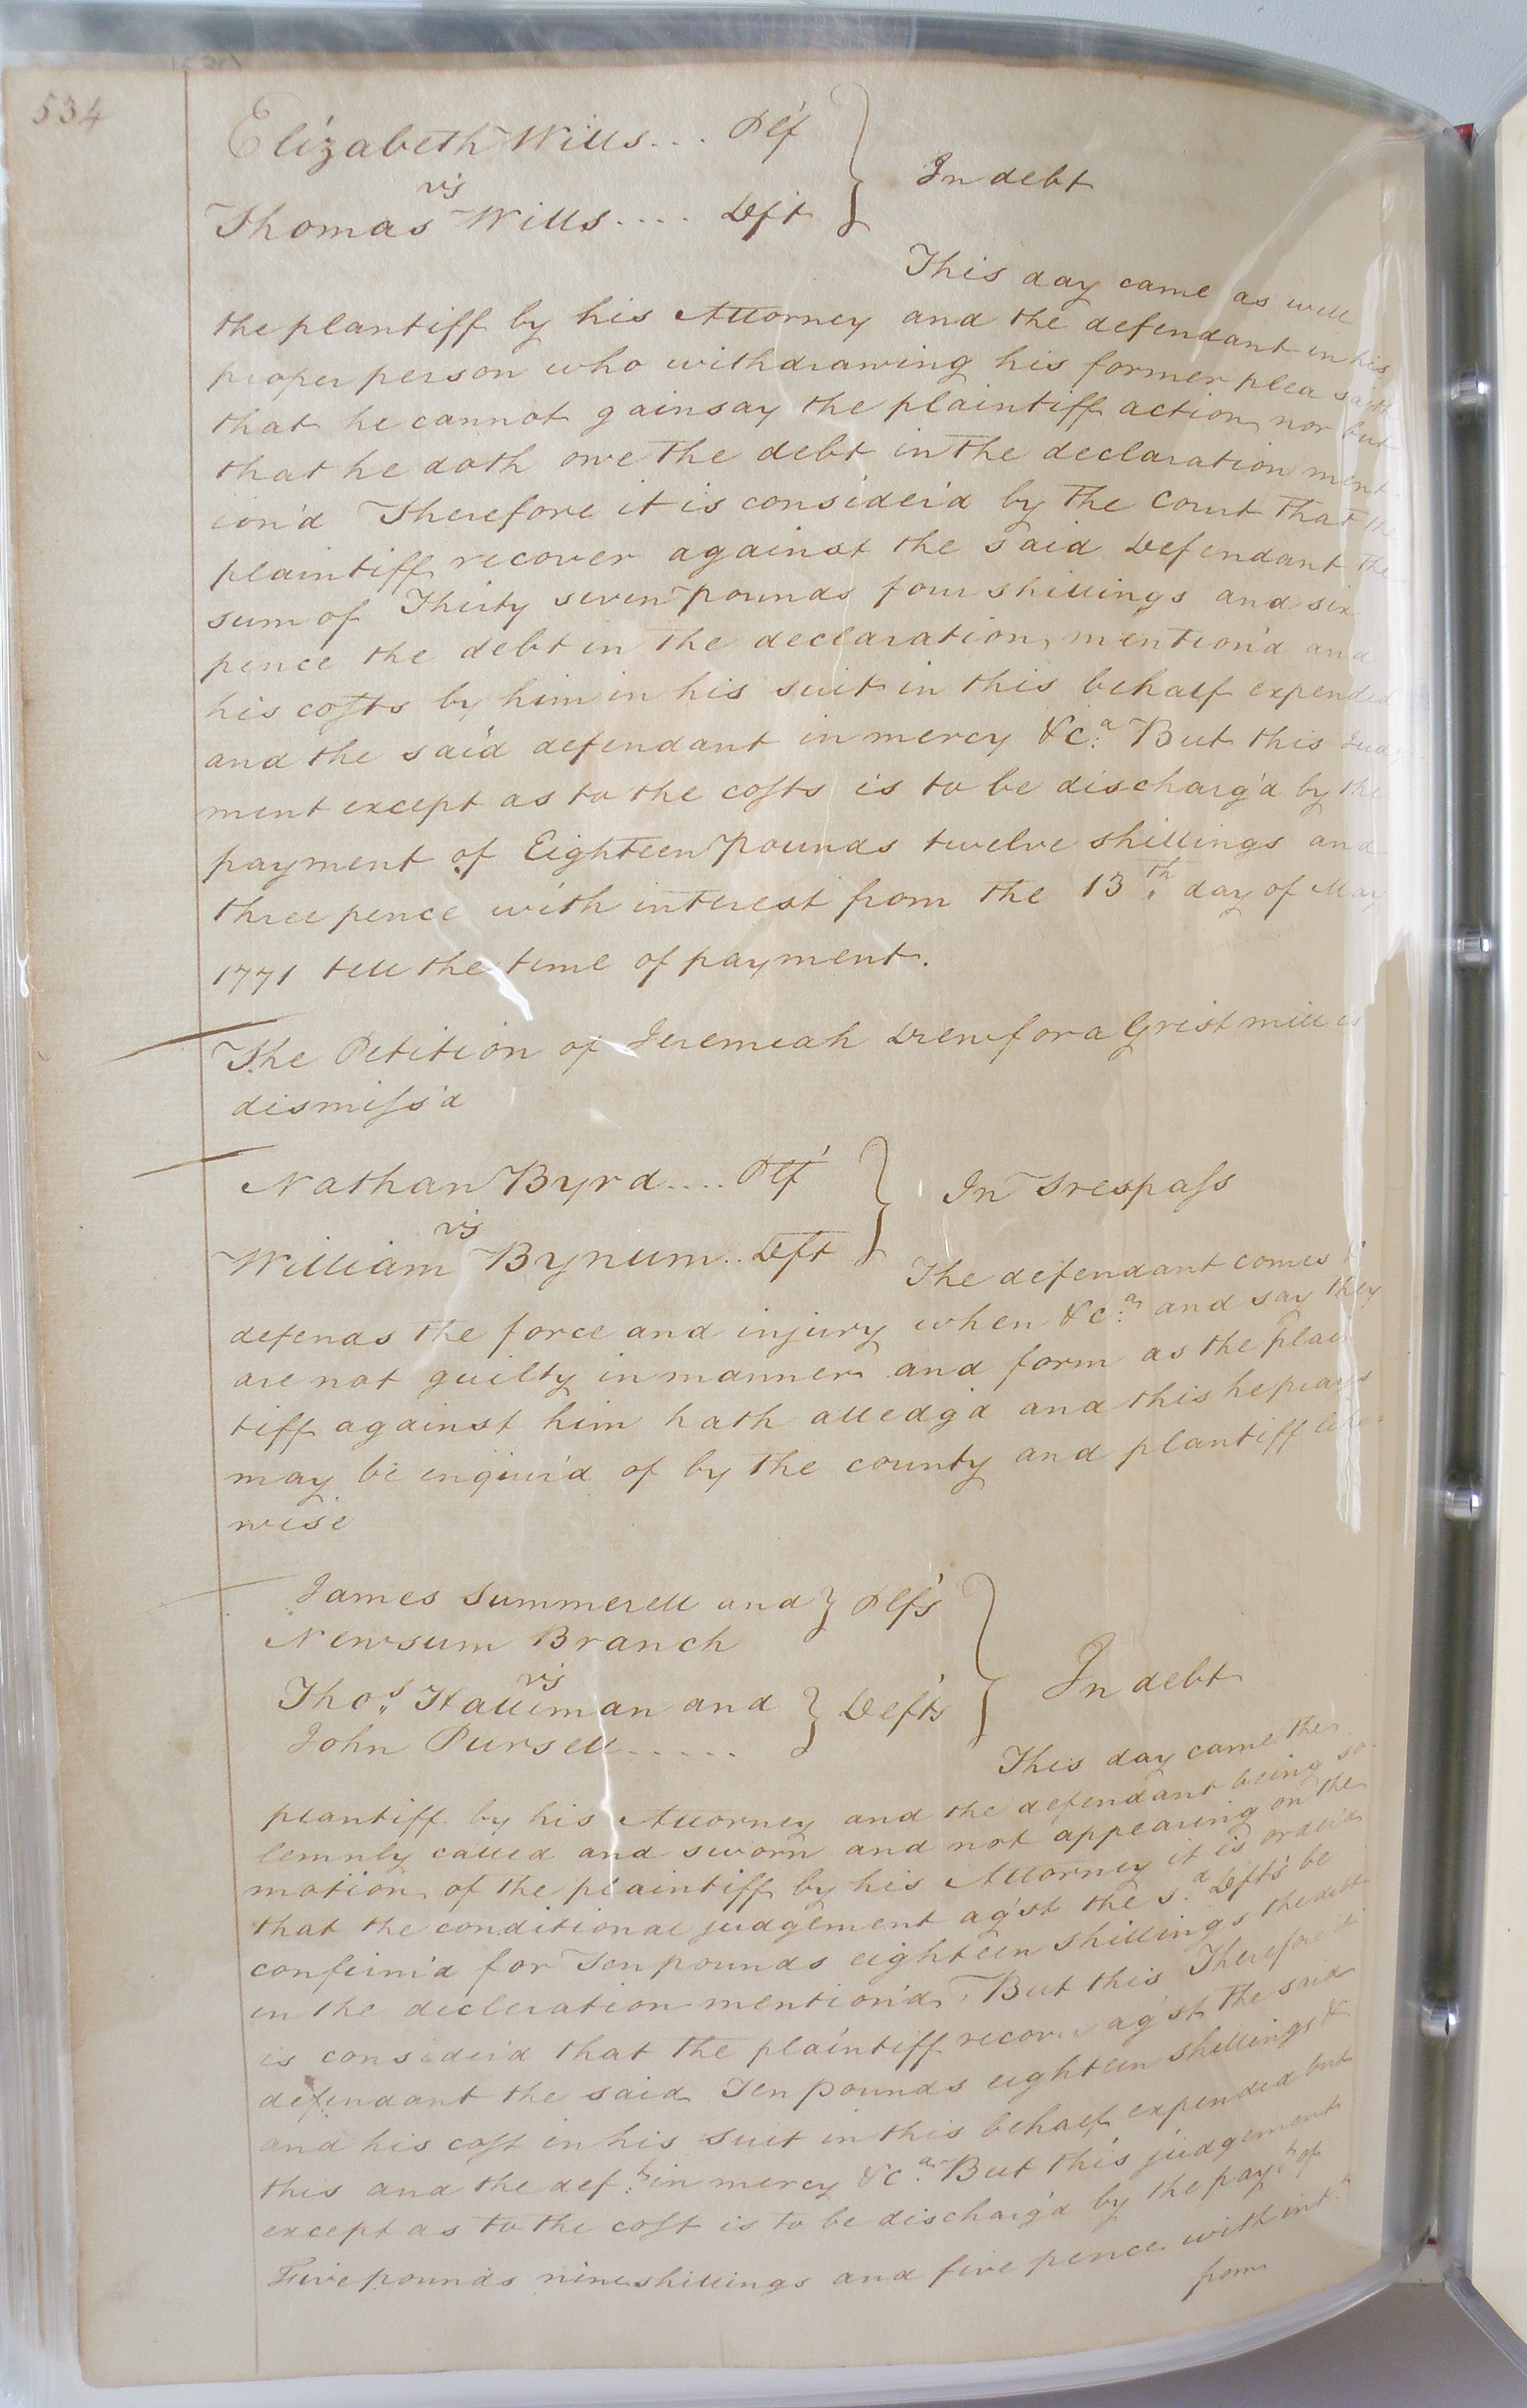 534
Elizabeth Wills... Plf
vs
Thomas Wills.... Deft
In debt
This day came as well
the plantiff by his Attorney and the defendant in his
proper person who withdrawing his former plea saith
that he cannot gainsay the plaintiff action nor but
that he doth owe the debt in the declaration ment
ion'd Therefore it is consider'd by the Court that the
plaintiff recover against the said Defendant the
sum of Thirty seven pounds four shillings and six
pence the debt in the declaration, mention'd and
his costs by him in his suit in this behalf expended
and the said defendant in mercy &c.a But this Judg
ment except as to the costs is to be discharg'd by the
payment of Eighteen pounds twelve shillings and
three pence with interest from the 13th day of May
1771 till the time of payment.
The Petition of Jeremiah Drew for a Grist mill is
dismiss'd
Nathan Byrd.... Plf
vs
William Bynum.. Deft
In Trespass
The defendant comes &
defends the force and injury when &c.a and say they
are not guilty in manner and form as the plain
tiff against him hath alledg'd and this he prays
may be inquir'd of by the county and plantiff like=
wise
James Summerell and } Plfs
Newsum Branch
vs
Thos. Halliman and } Defts
John Pursell.....
In debt
This day came the
plantiff by his Attorney and the defendant being so
lemnly called and sworn and not appearing on the
motion of the plaintiff by his Attorney it is order'd
that the conditional judgement ag'st the s.d Defts be
confirm'd for Ten pounds eighteen shillings the debt
in the decleration mention'd. But this Therefore it
is consider'd that the plaintiff recover ag'st the said
defendant the said Ten pounds eighteen shillings &
and his cost in his suit in this behalf expended but
this and the def.t in mercy &c.a But this judgement
except as to the cost is to be discharg'd by the pay.t of
Five pounds nine shillings and five pence with int.t
from